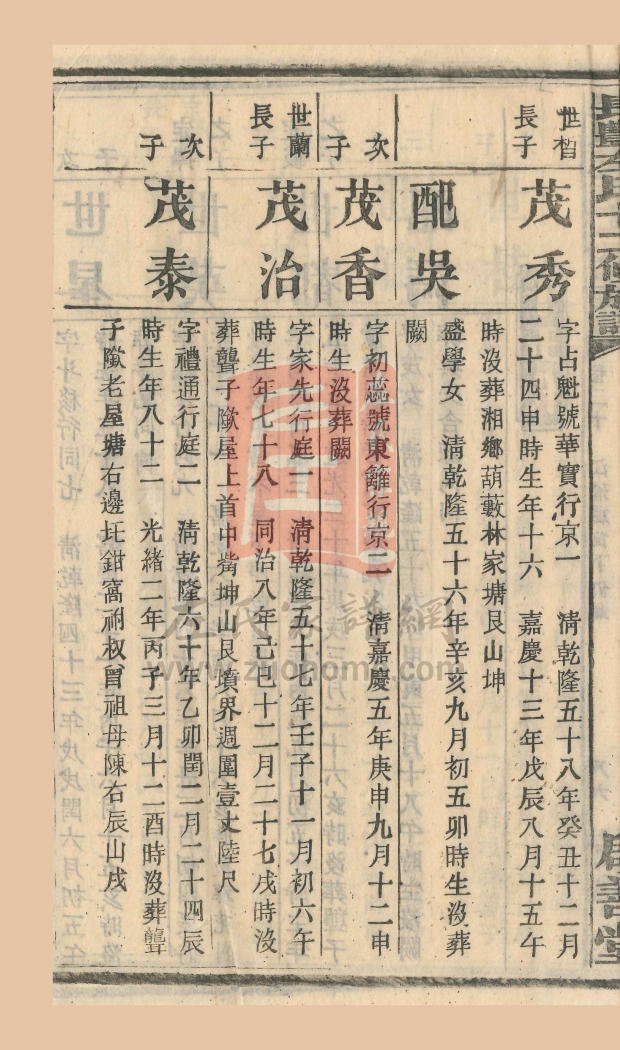 世晳
長子
茂秀
字占魁號華實行京一　清乾隆五十八年癸丑十二月
二十四申時生年十六　嘉慶十三年戊辰八月十五午
時沒葬湘鄉葫藪林家塘艮山坤
配吳
盛學女　清乾隆五十六年辛亥九月初五卯時生沒葬
闕
次
子
茂香
字初蕊號東籬行京二　清嘉慶五年庚申九月十二申
時生沒葬闕
世蘭
長子
茂治
字家先行庭一　清乾隆五十七年壬子十一月初六午
時生年七十八　同治八年己巳十二月二十七戌時沒
葬聾子歘屋上首中嘴坤山艮墳界週圍壹丈陸尺
次
子
茂泰
字禮通行庭二　清乾隆六十年乙卯閏二月二十四辰
時生年八十二　光緒二年丙子三月十二酉時沒葬聾
子歘老屋塘右邊坵鉗窩祔叔曾祖母陳右辰山戌
www.zuoname.com